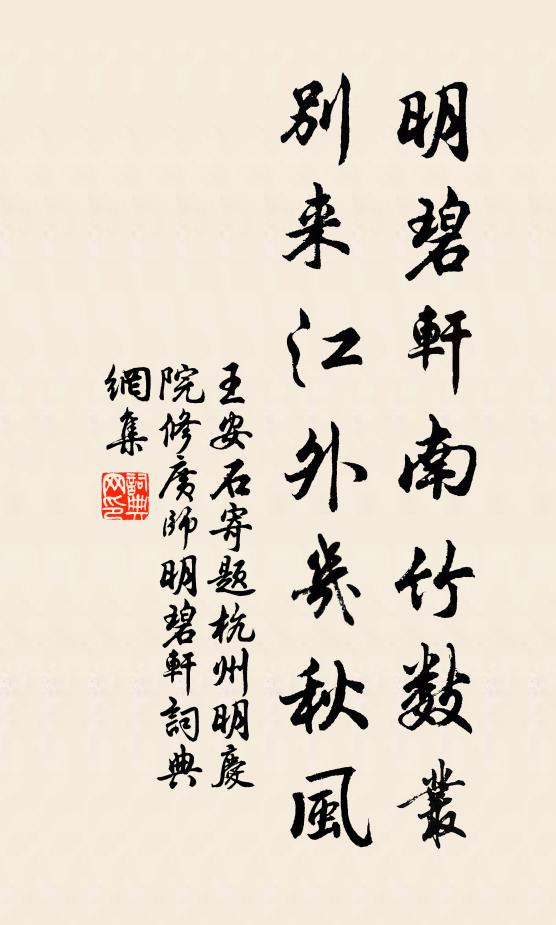 明碧軒南竹數叢
別来江外幾秋風
王安石寄題杭州明慶
院修廣師明碧軒詞典
網集
詞典
网印